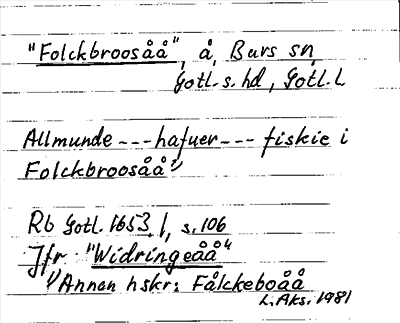 "Folckbroosåå", å, Burs sn,
Gotl. s. hd, Gotl. l.
Allmunde --- hafuer --- fiskie i
Folckbroosåå 1)
Rb Gotl. 1653, 1, s. 106
Jfr "Widringeåå"
1) Annan hskr: Fålckeboåå
L. Aks. 1981